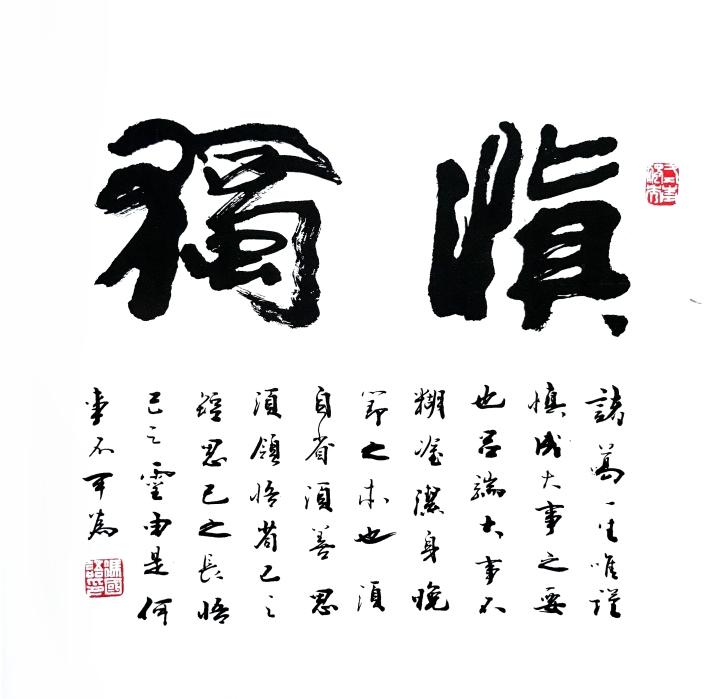 慎獨
諸葛一生唯謹
慎成大事之要
也吕端大事不
糊塗潔身晚
節之本也須
自省須善思
須領悟省己之
短思己之長悟
己之靈由是何
事不可為